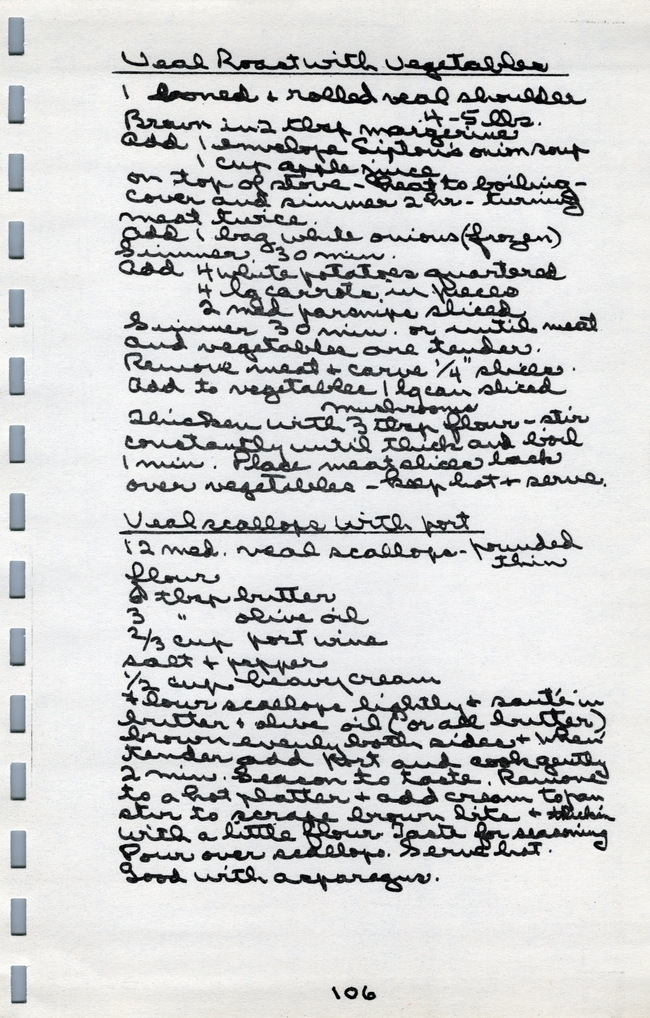 Veal Roast with Vegetables
1 boned + rolled veal shoulder
4-5 lbs.
Brown in 2 tbsp margerine
Add 1 envelope Lipton's onion soup
1 cup apple juice
on top of stove - Heat to boiling -
cover and simmer 2 hr - turning
meat twice.
Add 1 bag white onions (frozen)
Simmer 30 min.
Add 4 white potatoes quartered
4 lg carrots in pieces
2 med parsnips sliced
Simmer 30 min. or until meat
and vegetables are tender.
Remove meat + carve 1/4" slices.
Add to vegetables 1 lg can sliced
mushrooms
Thicken with 3 tbsp flour - stir
constantly until thick and boil
1 min. Place meat slices back
over vegetables - keep hot + serve.
Veal scallops with port
12 med. veal scallops - pounded
thin
flour
tbsp butter
3 " olive oil
2/3 cup port wine
salt + pepper
1/2 cup heavy cream
Flour scallops lightly + sauté in
butter + olive oil (or all butter)
brown evenly both sides + when
tender add Port and cook gently
2 min. Season to taste. Remove
to a hot platter + add cream to pan
stir to scrape brown bits + thicken
with a little flour Taste for seasoning
Pour over scallops. Serve hot.
Good with asparagus.
106